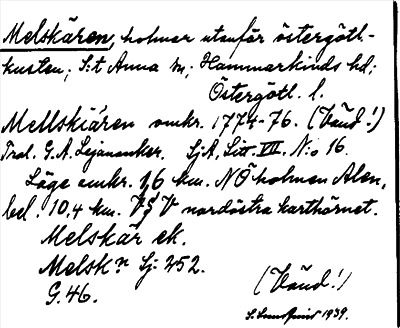 Melskären, holmar utanför östergötl-
kusten; S:t Anna sn; Hammarkinds hd;
Östergötl. l.
Mellskiären omkr. 1774-76. (Vänd!)
Trol. G.A. Lejonanker. SjA, Litt. VII, N:o 16.
Läge omkr. 1,6 km. NÖ holmen Alen,
bel. 10,4 km. VSV nordöstra karthörnet.
Melskär ek.
Melskn Sj. 252.
G. 46.
(Vänd!)
S. 1939.